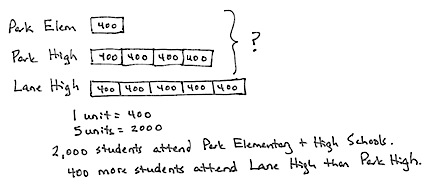 Park Elem 400
Park High 400 400 400 400 ?
Lane High 400 400 400 400 400
1 unit = 400
5 units = 2000
2,000 students attend Park Elementary + High Schools.
400 more students attend Lane High than Park High.